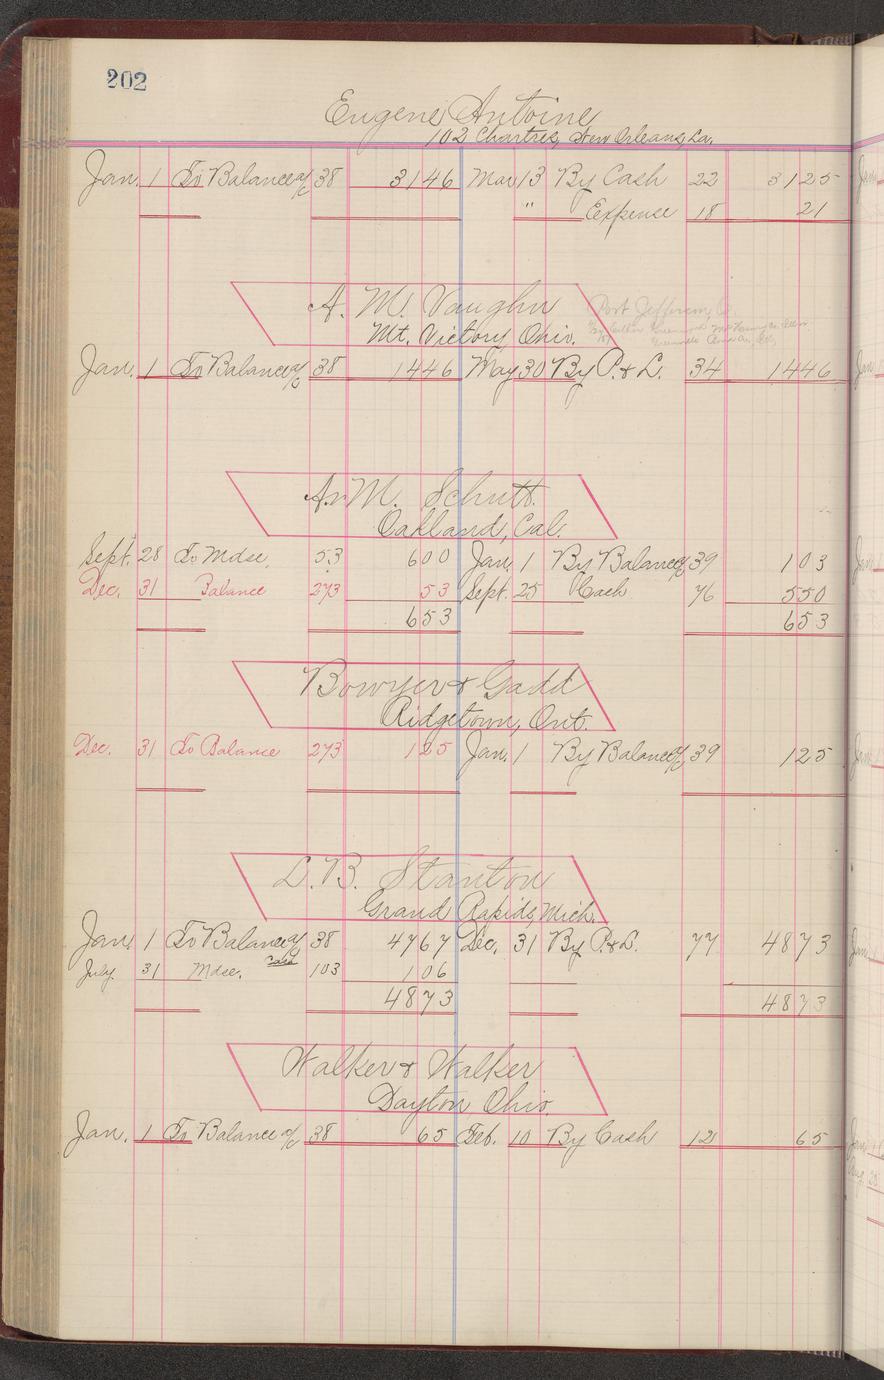 202
Eugene Antoine
102 Chartres, New Orleans, La.
Jan. 1 To Balance a/c 38 3146 Mar 13 By Cash 22 3125
" Expense 18 21
A. M. Vaughn Port Jefferson, O.
Mt. Victory, Ohio.
Jan. 1 To Balance a/c 38 1446 May 30 By P. & L. 34 1446
A. M. Schutt.
Oakland, Cal.
Sept. 28 To Mdse. 53 600 Jan. 1 By Balance a/c 39 103
Dec. 31 Balance 273 53 Sept. 25 Cash 76 550
653 653
Bowyer & Gadd
Ridgetown, Ont.
Dec. 31 To Balance 273 125 Jan. 1 By Balance a/c 39 125
L. B. Stanton
Grand Rapids, Mich.
Jan. 1 To Balance a/c 38 4767 Dec. 31 By P. & L. 77 4873
July 31 Mdse. 103 106
4873 4873
Walker & Walker
Dayton Ohio.
Jan. 1 To Balance a/c 38 65 Feb. 10 By Cash 12 65